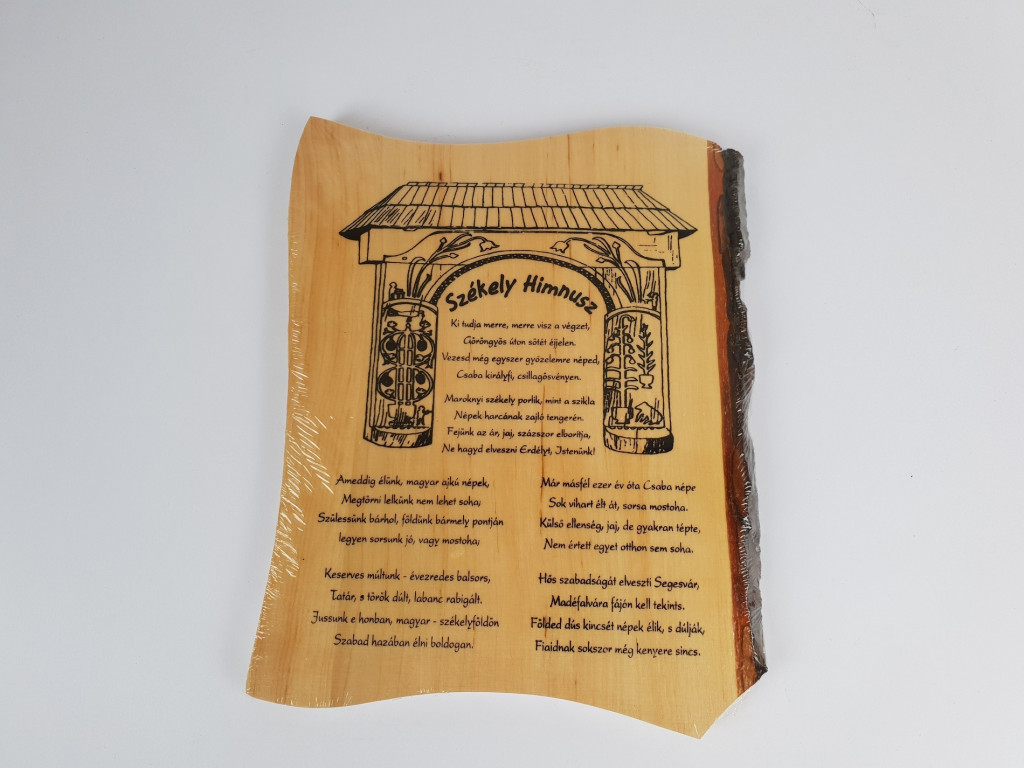 Székely Himnusz
Ki tudja merre, merre visz a végzet,
Göröngyös úton sötét éjjelen.
Vezesd még egyszer győzelemre néped,
Csaba királyfi, csillagösvényen.
Maroknyi székely porlik, mint a szikla
Népek harcának zajló tengerén.
Fejünk az ár, jaj, százszor elborítja,
Ne hagyd elveszni Erdélyt, Istenünk!
Ameddig élünk, magyar ajkú népek,
Megtörni lelkünk nem lehet soha;
Szülessünk bárhol, földünk bármely pontján
legyen sorsunk jó, vagy mostoha;
Keserves múltunk - évezredes balsors,
Tatár, s török dúlt, labanc rabigált.
Jussunk e honban, magyar - székelyföldön
Szabad hazában élni boldogan.
Már másfél ezer év óta Csaba népe
Sok vihart élt át, sorsa mostoha.
Külső ellenség, jaj, de gyakran tépte,
Nem értett egyet otthon sem soha.
Hős szabadságát elveszti Segesvár,
Madéfalvára fájón kell tekints.
Földed dús kincsét népek élik, s dúlják,
Fiaidnak sokszor még kenyere sincs.